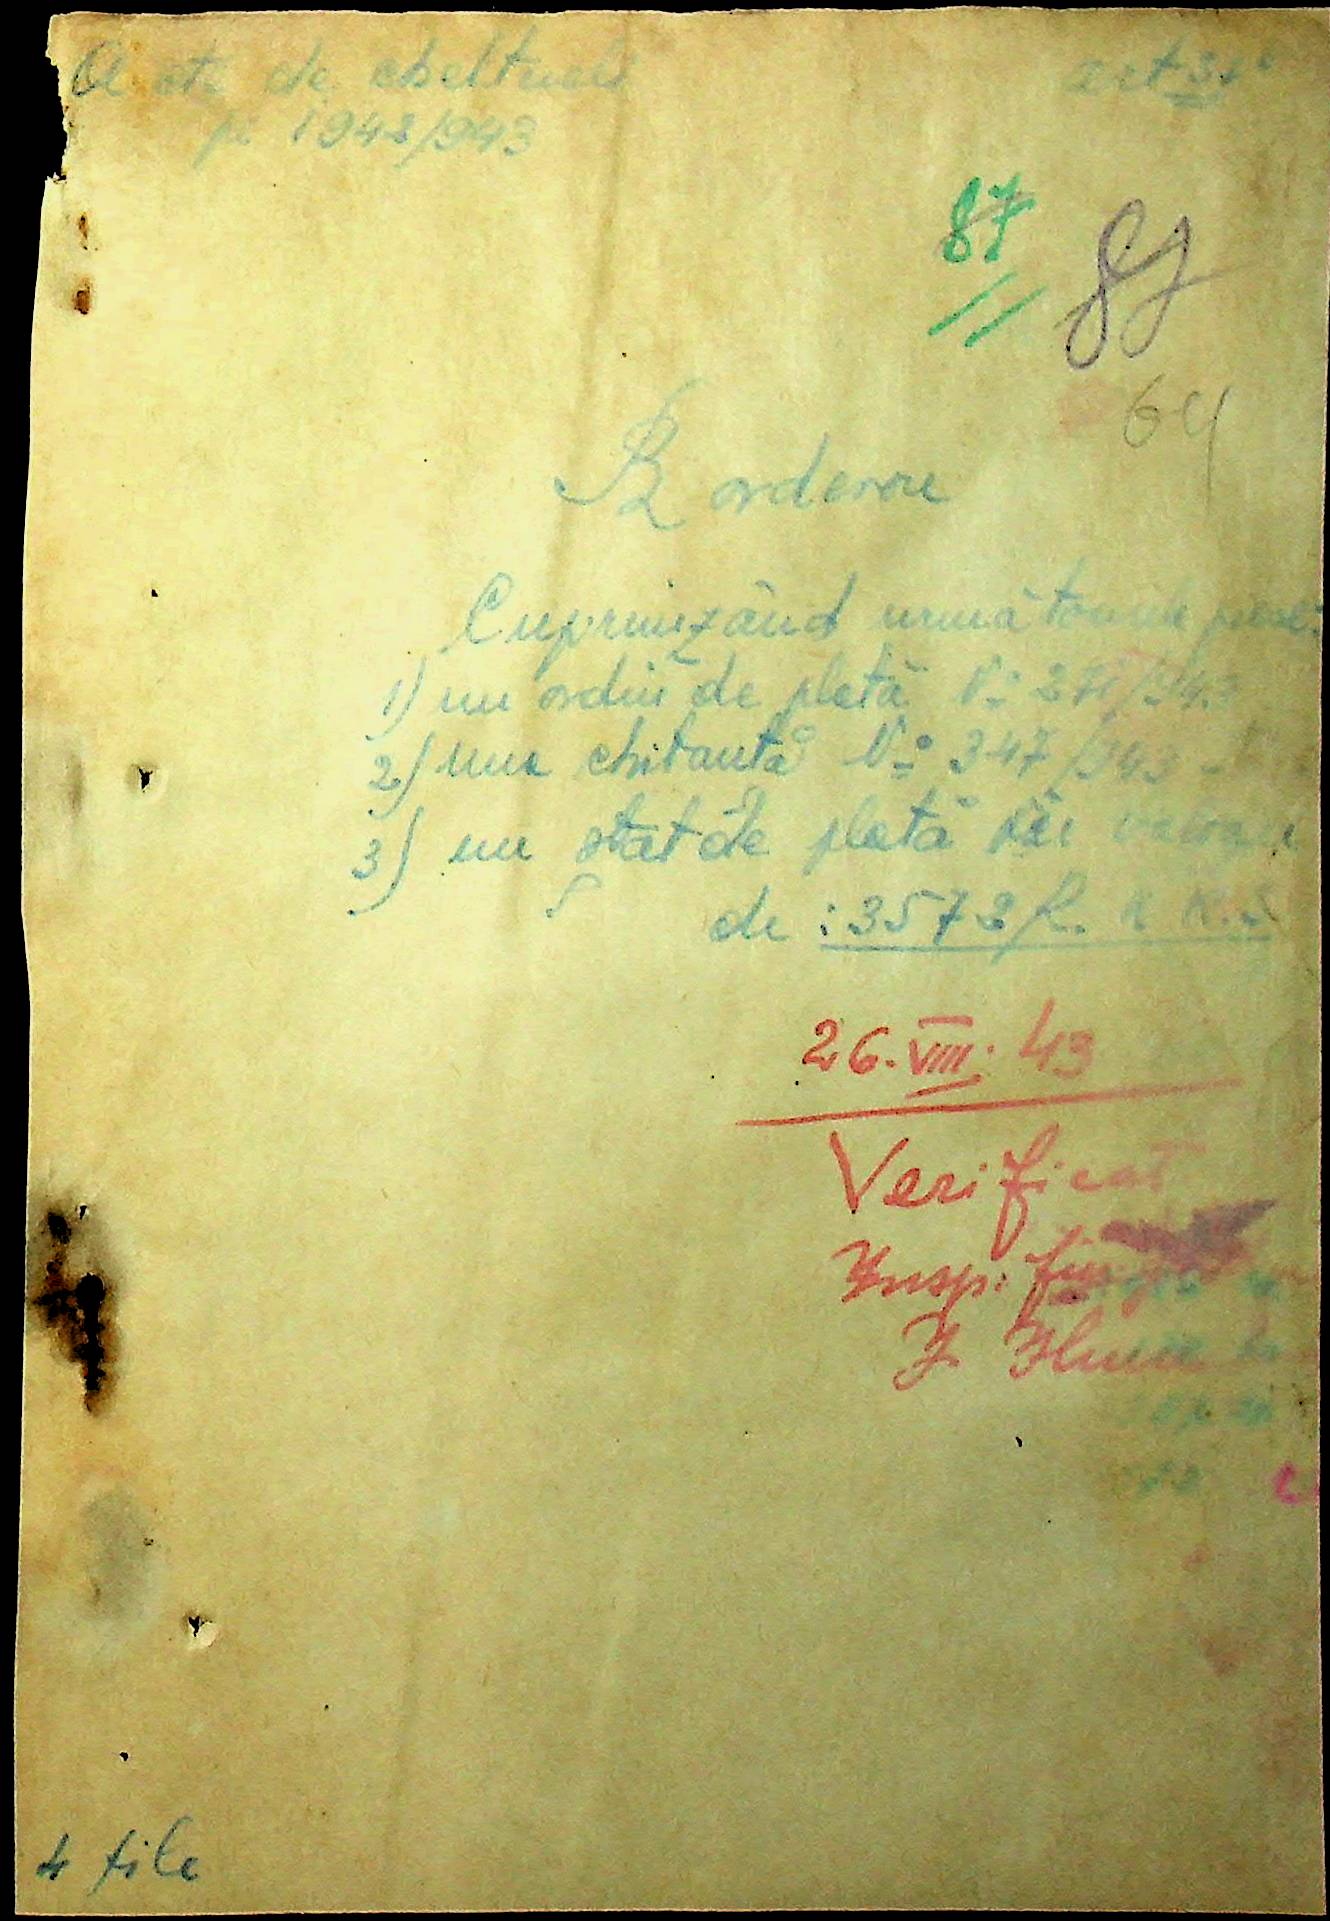 Acte de cheltueli
pe 1942/943
art 3
87
87
64
Borderou
Cuprinzând următoarele piese:
1) un ordin de plată No 271/943
2) una chitanță No 347/943
3) un stat de plată în valoare
de : 3572 R.K.K.S
26. VIII. 43
Verificat
Insp. fin
I
4 file